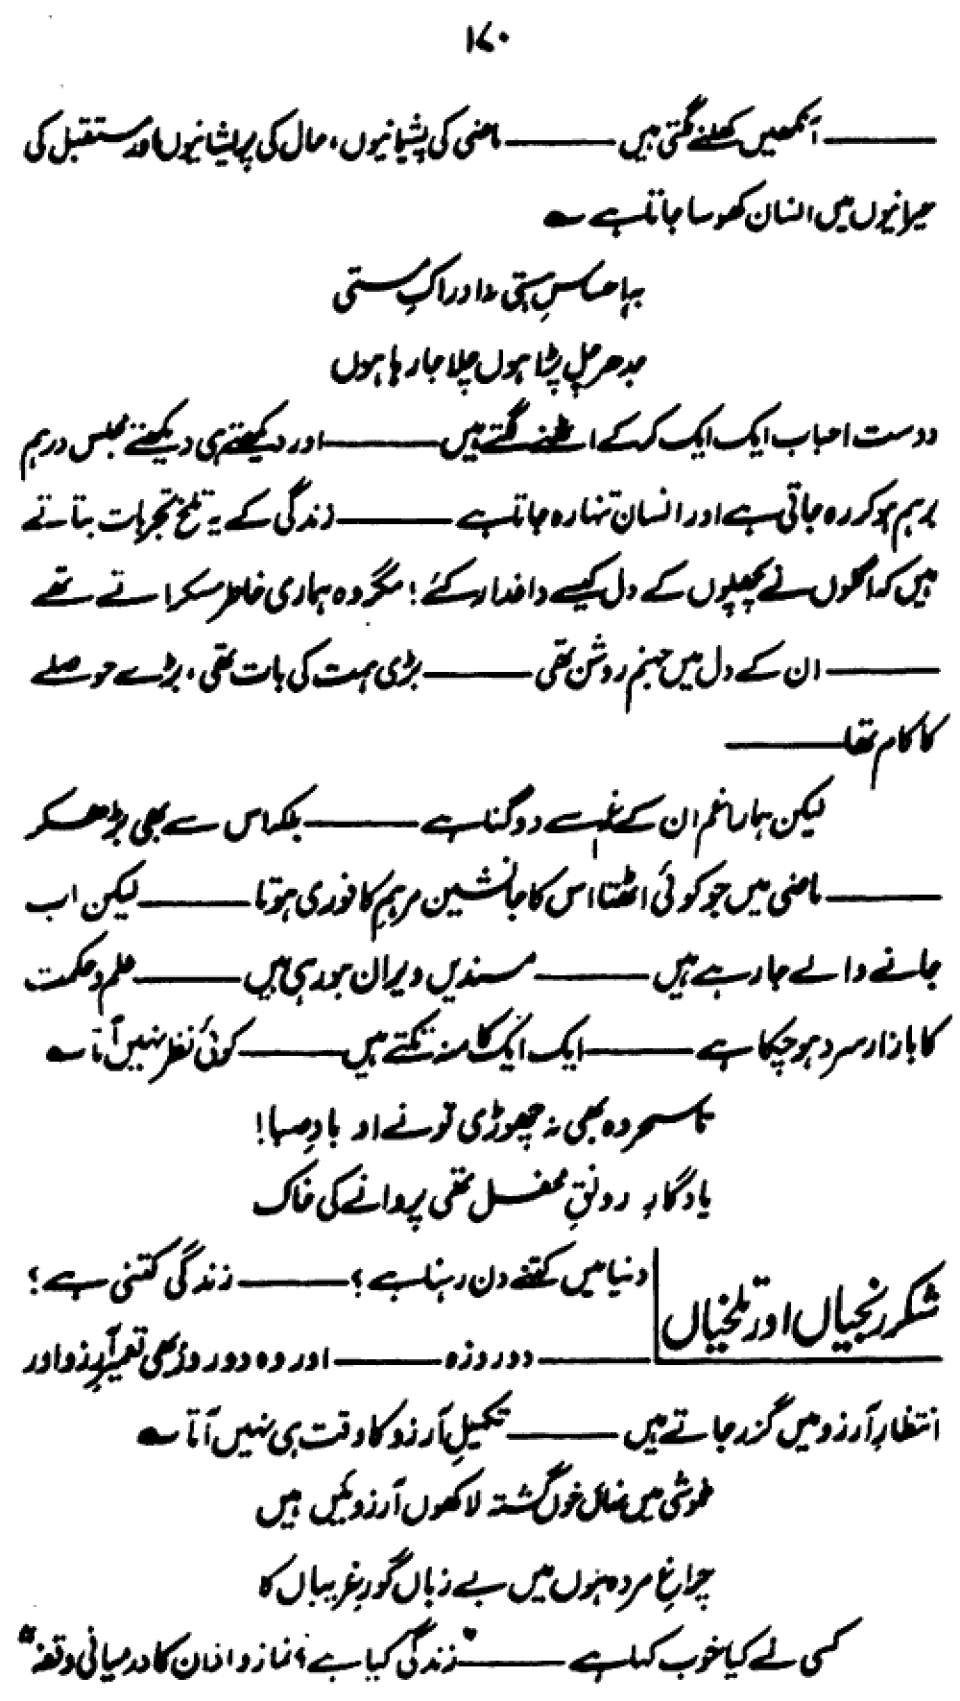 ۱۷۰
——— آنکھیں کھلنے لگتی ہیں ——— ماضی کی پشیمانیوں، حال کی پریشانیوں اور مستقبل کی
حیرانیوں میں انسان کھو سا جاتا ہے ؎
احساسِ پستی نہ ادراکِ مستی
جدھر چل پڑا ہوں چلا جا رہا ہوں
دوست احباب ایک ایک کر کے اٹھنے لگتے ہیں ——— اور دیکھتے ہی دیکھتے مجلس درہم
برہم ہو کر رہ جاتی ہے اور انسان تنہا رہ جاتا ہے ——— زندگی کے یہ تلخ تجربات بتاتے
ہیں کہ اگلوں نے پچھلوں کے دل کیسے داغدار کئے! مگر وہ ہماری خاطر مسکراتے تھے
——— ان کے دل میں جہنم روشن تھی ——— بڑی ہمت کی بات تھی، بڑے حوصلے
کا کام تھا ———
لیکن ہمارا غم ان کے غم سے دوگنا ہے ——— بلکہ اس سے بھی بڑھ کر
——— ماضی میں جو کوئی اٹھتا اس کا جانشین مرہمِ کافوری ہوتا ——— لیکن اب
جانے والے جا رہے ہیں ——— مسندیں ویران ہو رہی ہیں ——— علم و حکمت
کا بازار سرد ہو چکا ہے ——— ایک ایک کا منہ تکتے ہیں ——— کوئی نظر نہیں آتا ؎
تا سحر وہ بھی نہ چھوڑی تو نے او بادِ صبا!
یادگارِ رونقِ محفل تھی پروانے کی خاک
شکر رنجیاں اور تلخیاں
دنیا میں کتنے دن رہنا ہے؟ ——— زندگی کتنی ہے؟
——— دو روزہ ——— اور وہ دو روز بھی تعمیرِ آرزو اور
انتظارِ آرزو میں گزر جاتے ہیں ——— تکمیلِ آرزو کا وقت ہی نہیں آتا ؎
خموشی میں نہاں خوں گشتہ لاکھوں آرزوئیں ہیں
چراغِ مردہ ہوں میں بے زباں گورِ غریباں کا
کسی نے کیا خوب کہا ہے ——— "زندگی کیا ہے؟ نماز و اذان کا درمیانی وقفہ"